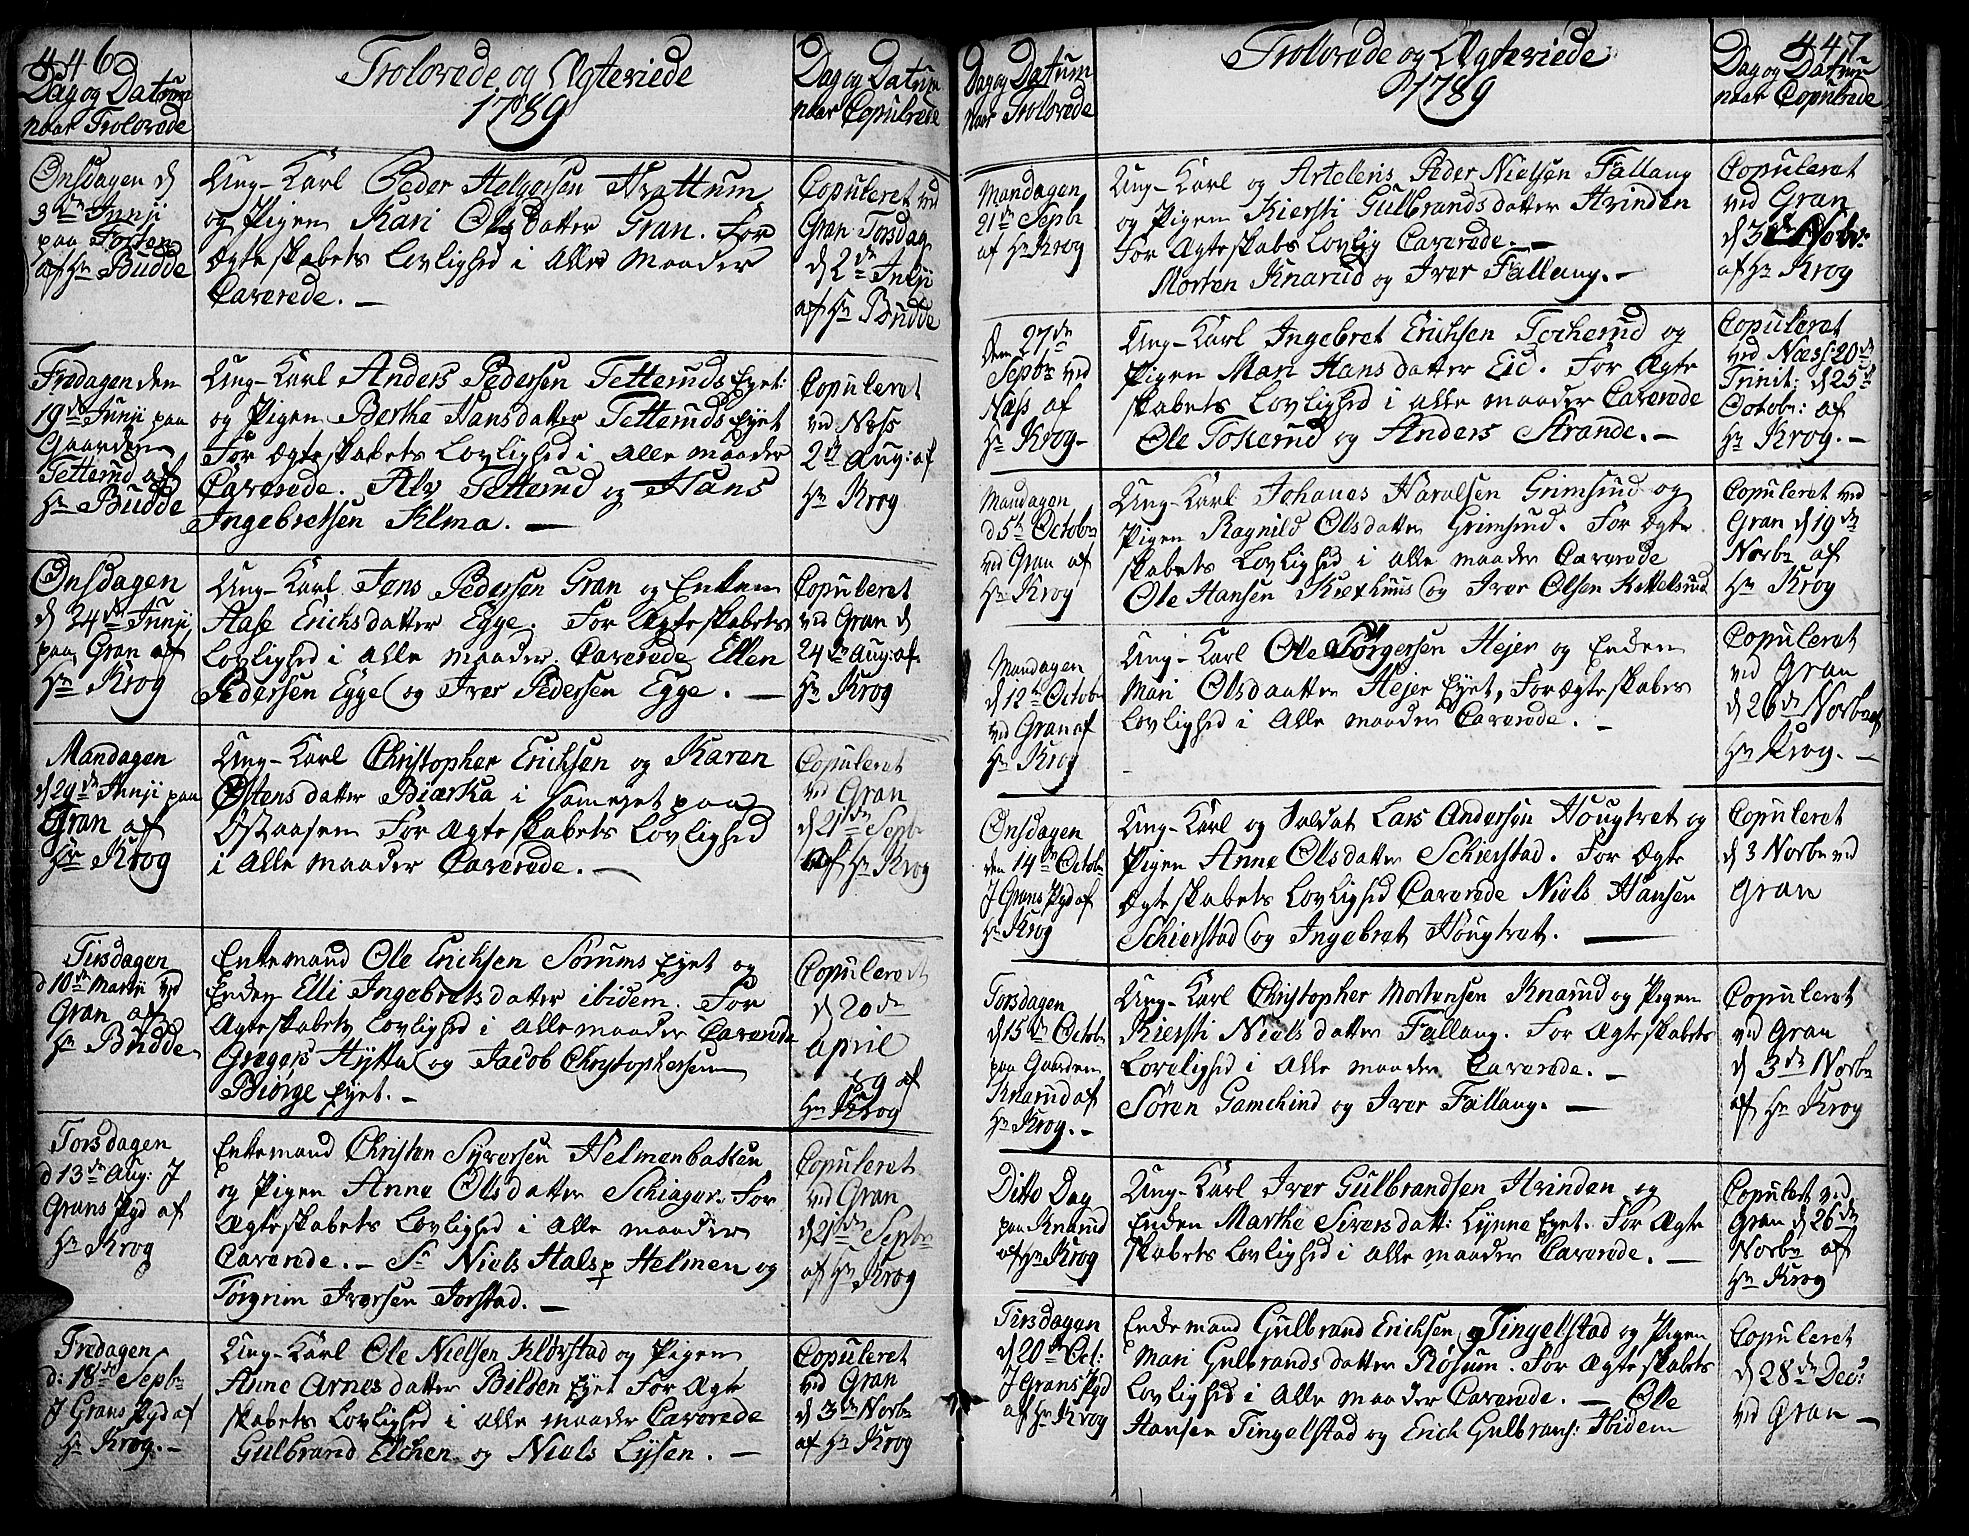 446
Trolovede og Ægteviede
1789
Dag og Datum
naar Trolovede
Dag og Datum
naar Copulerede
Onsdagen d
3die Junji
paa Fosten
af Hr Budde
Ung-Karl Peder Helgersen Hvattum
og Pigen Kari Olsdatter Gran. For
Ægteskabets Lovlighed i Alle maader
Caverede. —
Copuleret ved
Gran Torsdag
d 2de Julji
af Hr Budde
Fredagen den
19de Junji paa
Gaarden
Tetterud af
Hr Budde
Ung-Karl Anders Pedersen Tetteruds Eyet:
og Pigen Berthe Hansdatter Tetteruds Eyet
For Ægteskabets Lovlighed i Alle maader
Caverede. Alv Tetterud og Hans
Ingebretsen Alma. —
Copuleret
ved Næss
2d Aug: af
Hr Krog
Onsdagen
d 24de Junji
paa Gran af
Hr Krog
Ung-Karl Jens Pedersen Gran og Enken
Aase Erichsdatter Egge. For Ægteskabets
Lovlighed i alle maader Caverede Ellen
Pedersen Egge og Iver Pedersen Egge. —
Copuleret
ved Gran d
24de Aug: af
Hr Krog
Mandagen
d 29de Junji paa
Gran af
Hr Krog
Ung-Karl Christopher Erichsen og Karen
Østensdatter Biærka i Hameyet paa
Østaasen For Ægteskabets Lovlighed
i Alle maader Caverede. —
Copuleret
ved Gran
d 21de Septbr
af Hr Krog
Tirsdagen
d 10de Martji ved
Gran af
Hr Budde
Enkemand Ole Erichsen Sørums Eyet og
Enken Elli Ingebretsdatter ibidem. For
Ægteskabets Lovlighed i Alle maader Caverede
Gregers Hytta og Jacob Christophersen
Biørge Eyet. —
Copuleret
d 20de
april
89 af
Hr Krog
Torsdagen
d 13de Aug: I
Grans Pgd af
Hr Krog
Enkemand Christen Syversen Helmenbakken
og Pigen Anne Olsdatter Schiager. For
Ægteskabets Lovlighed i Alle maader
Caverede. — Sr Niels Hals p Helmen og
Torgrim Iversen Jorstad. —
Copuleret
ved Gran
d 21de Septbr
af Hr Krog
Fredagen
d: 18de Septbr
I Grans Pgd af
Hr Krog. —
Ung-Karl Ole Nielsen Klørstad og Pigen
Anne Arnesdatter Bilden Eyet For Ægte
skabets Lovlighed i alle maader Caverede
Gulbrand Elchen og Niels Lysen. —
Copuleret
ved Gran
d 3de Novbr
af Hr Krog
447
Trolovede og Ægteviede
1789
Dag og Datum
naar Trolovede
Dag og Datum
naar Copulerede
Mandagen
21de Septbr
af Hr Krog
Ung-Karl og Artelens Peder Nielsen Fallang
og Pigen Kiersti Gulbrandsdatter Hvinden
For Ægteskabs Lovlig Caverede. —
Morten Knarud og Iver Fallang. —
Copuleret
ved Gran
d 3de Novbr:
af Hr Krog
den 27de
Septbr ved
Næss af
Hr Krog-
Ung-Karl Ingebret Erichsen Tocherud og
Pigen Mari Hansdatter Eid. For Ægte
skabets Lovlighed i alle maader Caverede
Ole Tokerud og Anders Strande. —
Copuleret
ved Næss: 20de
Trinit: d 25de
Octobr: af
Hr Krog. —
Mandagen
d 5te Octobr
ved Gran af
Hr Krog
Ung-Karl Johanes Haralsen Grimsrud og
Pigen Ragnild Olsdatter Grimsrud. For Ægte
skabets Lovlighed i alle maader Caverede
Ole Hansen og Iver Olsen Kittelsrud
Copuleret ved
Gran d 19de
Novbr af
Hr Krog
Mandagen
d 12te Octobr
ved Gran af
Hr Krog
Ung-Karl Ole Torgersen Hejer og Enken
Mari Olsdaatter Hejer Eyet, For Ægteskabes
Lovlighed i Alle maader Caverede. —
Copuleret
ved Gran
d 26de Novbr af
Hr Krog. —
Onsdagen
den 14de Octobr
I Grans Pgd af
Hr Krog
Ung-Karl og Soldat Lars Andersen Hougtvet og
Pigen Anne Olsdatter Schierstad. For Ægte
Ægteskabets Lovlighed Caverede Niels Hansen
Schierstad og Ingebret Hougtvet. —
Copuleret
d 3 Novbr ved
Gran
Torsdagen
d 15de Octobr
paa Gaarden
Knarud af
Hr Krog. —
Ung-Karl Christopher Mortensen Knarud og Pigen
Kiersti Nielsdatter Fallang. For Ægteskabets
Lovelighed i Alle maader Caverede. —
Søren Gamchind og Iver Fallang. —
Copuleret
ved Gran
d 3de Novbr
af Hr Krog
Ditto Dag
paa Knarud
af Hr Krog
Ung-Karl Iver Gulbrandsen Hvinden og
Enken Marthe Siversdatt: Lynne Eyet. For Ægte
skabets Lovlighed i Alle maader Caverede. —
Copulert ved
Gran d 26de
Novbr af
Hr Krog
Tirsdagen
d 20de Oct:
I Grans Pgd
af Hr Krog
Enkemand Gulbrand Erichsen Tingelstad og Pigen
Mari Gulbrandsdatter Røsum. For Ægteskabets
Lovlighed i Alle maader Caverede. — Ole
Hansen Tingelstad og Erich Gulbrans: Ibidem
Copuleret
d 28de Dec:
ved Gran —